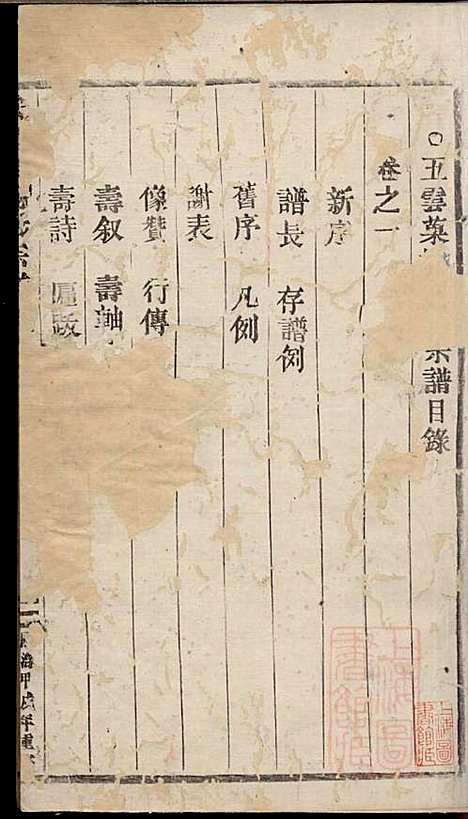 ○五雲葉
宗譜目錄
卷之一
新序
譜長 存譜例
舊序 凡例
謝表
像贊 行傳
壽叙 壽軸
壽詩 匾跋
治甲戌年重
上海圖書館藏
上海圖書館藏